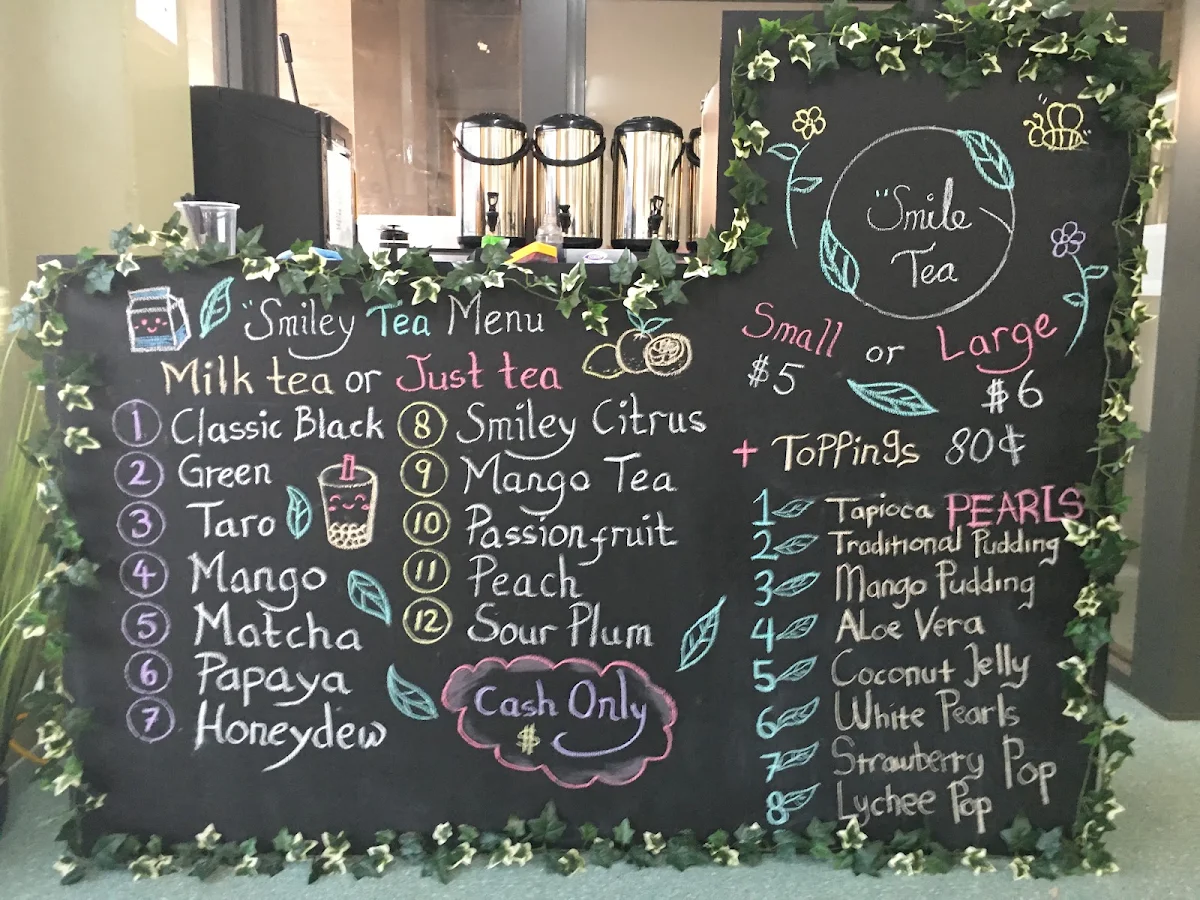 Smile
Tea
Smiley Tea Menu
Milk tea or Just tea
1 Classic Black
2 Green
3 Taro
4 Mango
5 Matcha
6 Papaya
7 Honeydew
8 Smiley Citrus
9 Mango Tea
10 Passionfruit
11 Peach
12 Sour Plum
Cash Only
$
Small or Large
$5 $6
+ Toppings 80¢
1 Tapioca PEARLS
2 Traditional Pudding
3 Mango Pudding
4 Aloe Vera
5 Coconut Jelly
6 White Pearls
7 Strawberry Pop
8 Lychee Pop